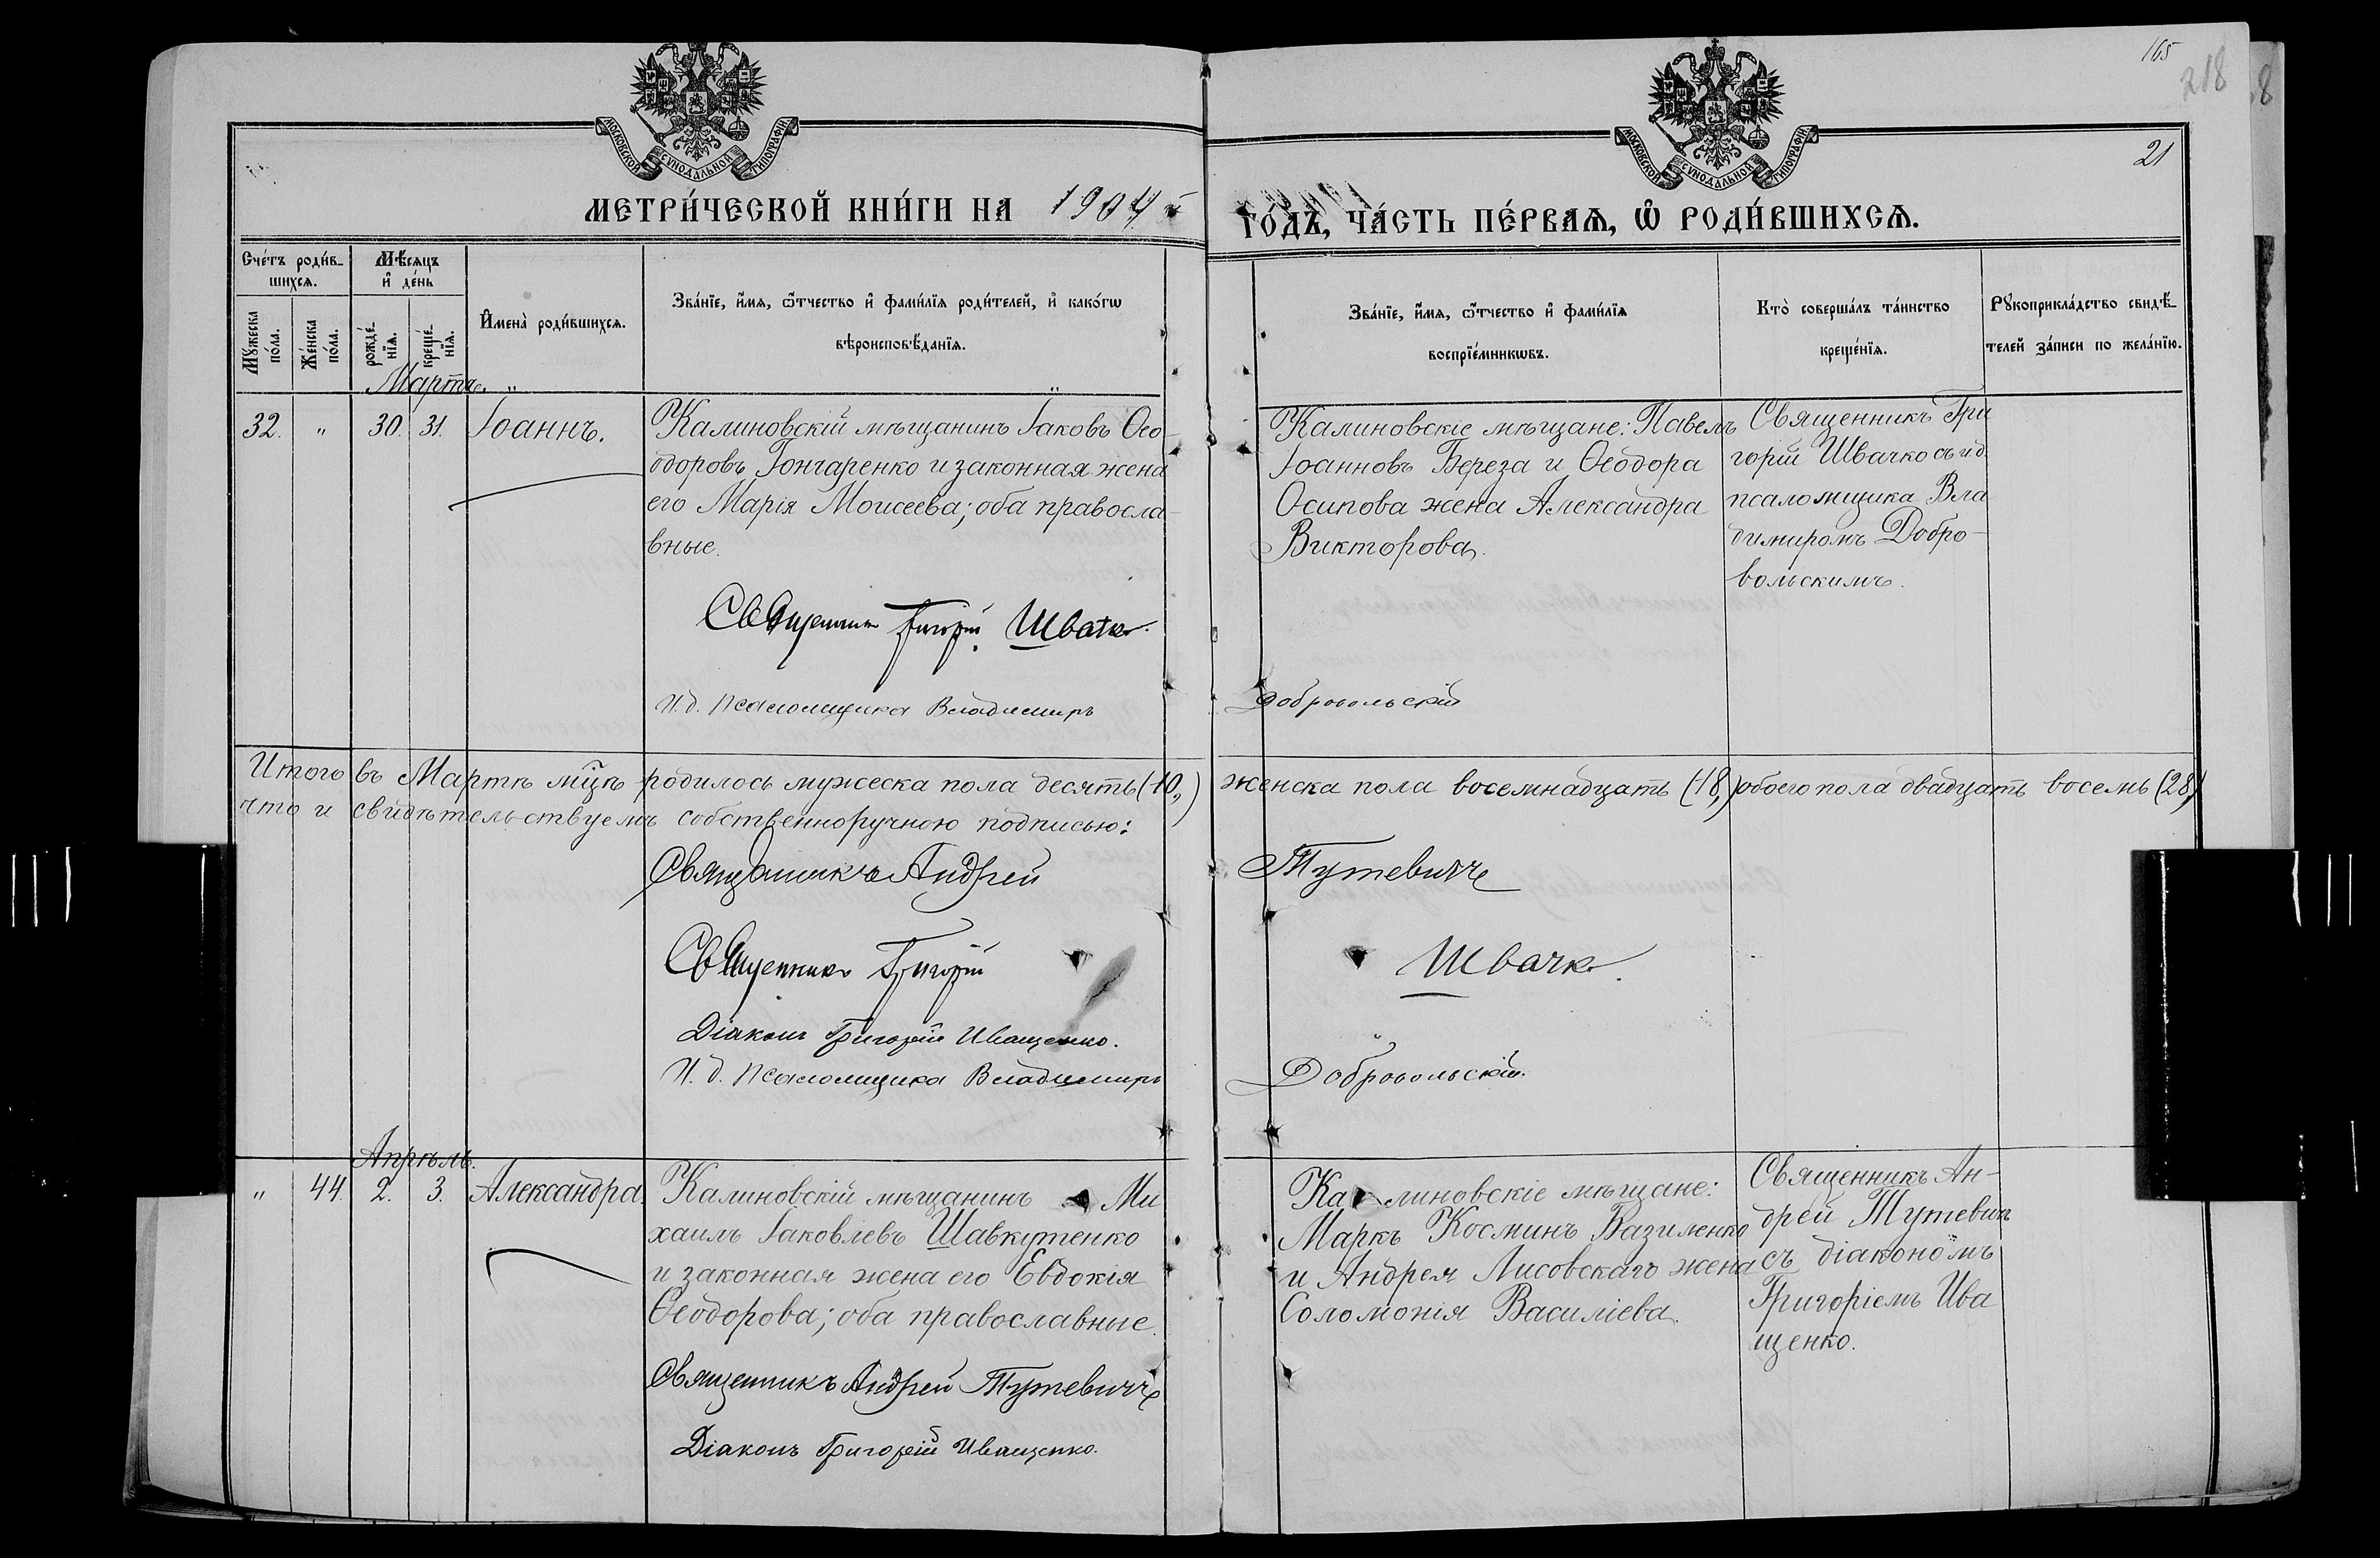 165
218
8
21
МОСКОВСКОЙ СѴНОДАЛЬНОЙ ТИПОГРАФІИ
МОСКОВСКОЙ СѴНОДАЛЬНОЙ ТИПОГРАФІИ
МЕТРИ́ЧЕСКОЙ КНИ́ГИ НА 1904 й
ГО́ДЪ, ЧА́СТЬ ПЕ́РВАЯ, Ѡ РОДИ́ВШИХСЯ.
Сче́тъ роди́в-
шихся.
Мꙋ́жеска
по́ла.
Же́нска
по́ла.
Мѣ́сяцъ
и де́нь
рожде́-
нїя.
креще́-
нїя.
Имена̀ роди́вшихся.
Зва́нїе, и́мя, ѻ́тчество и фами́лїя роди́телей, и како́гѡ
вѣроисповѣ́данїя.
Зва́нїе, и́мя, ѻ́тчество и фами́лїя
воспрїе́мникѡвъ.
Кто̀ соверша́лъ та́инство
креще́нїя.
Рꙋкоприкла́дство свидѣ́-
телей за́писи по жела́нїю.
Мартъ. „ „
32. „ 30. 31. Іоаннъ.
Калиновскій мѣщанинъ Іаковъ Ѳео-
доровъ Гончаренко и законная жена
его Марія Моисеева; оба правосла-
вные.
Священникъ Григорій Швачко.
И. д. Псаломщика Владимиръ
Калиновскіе мѣщане: Павелъ
Іоанновъ Береза и Ѳеодора
Осипова жена Александра
Викторова.
Добровольскій
Священникъ Гри
горій Швачко съ и.д.
псаломщика Вла
димиромъ Добро-
вольскимъ.
Итого въ Мартѣ мцѣ родилось мужеска пола десять (10,) женска пола восемнадцать (18,) обоего пола двадцать восемь (28,)
что и свидѣтельствуемъ собственноручною подписью:
Священникъ Андрей Тутевичъ
Священникъ Григорій Швачко.
Діаконъ Григорій Иващенко.
И. д. Псаломщика Владимиръ Добровольскій.
Апрѣль.
„ 44. 2. 3. Александра.
Калиновскій мѣщанинъ Ми
хаилъ Іаковлевъ Шавкутенко
и законная жена его Евдокія
Ѳеодорова; оба православные.
Священникъ Андрей Тутевичъ
Діаконъ Григорій Иващенко.
Калиновскіе мѣщане:
Маркъ Косминъ Вазиленко
и Андрея Лисовскаго жена
Соломонія Василіева.
Священникъ Ан-
дрей Тутевичъ
съ діакономъ
Григоріемъ Ива
щенко.